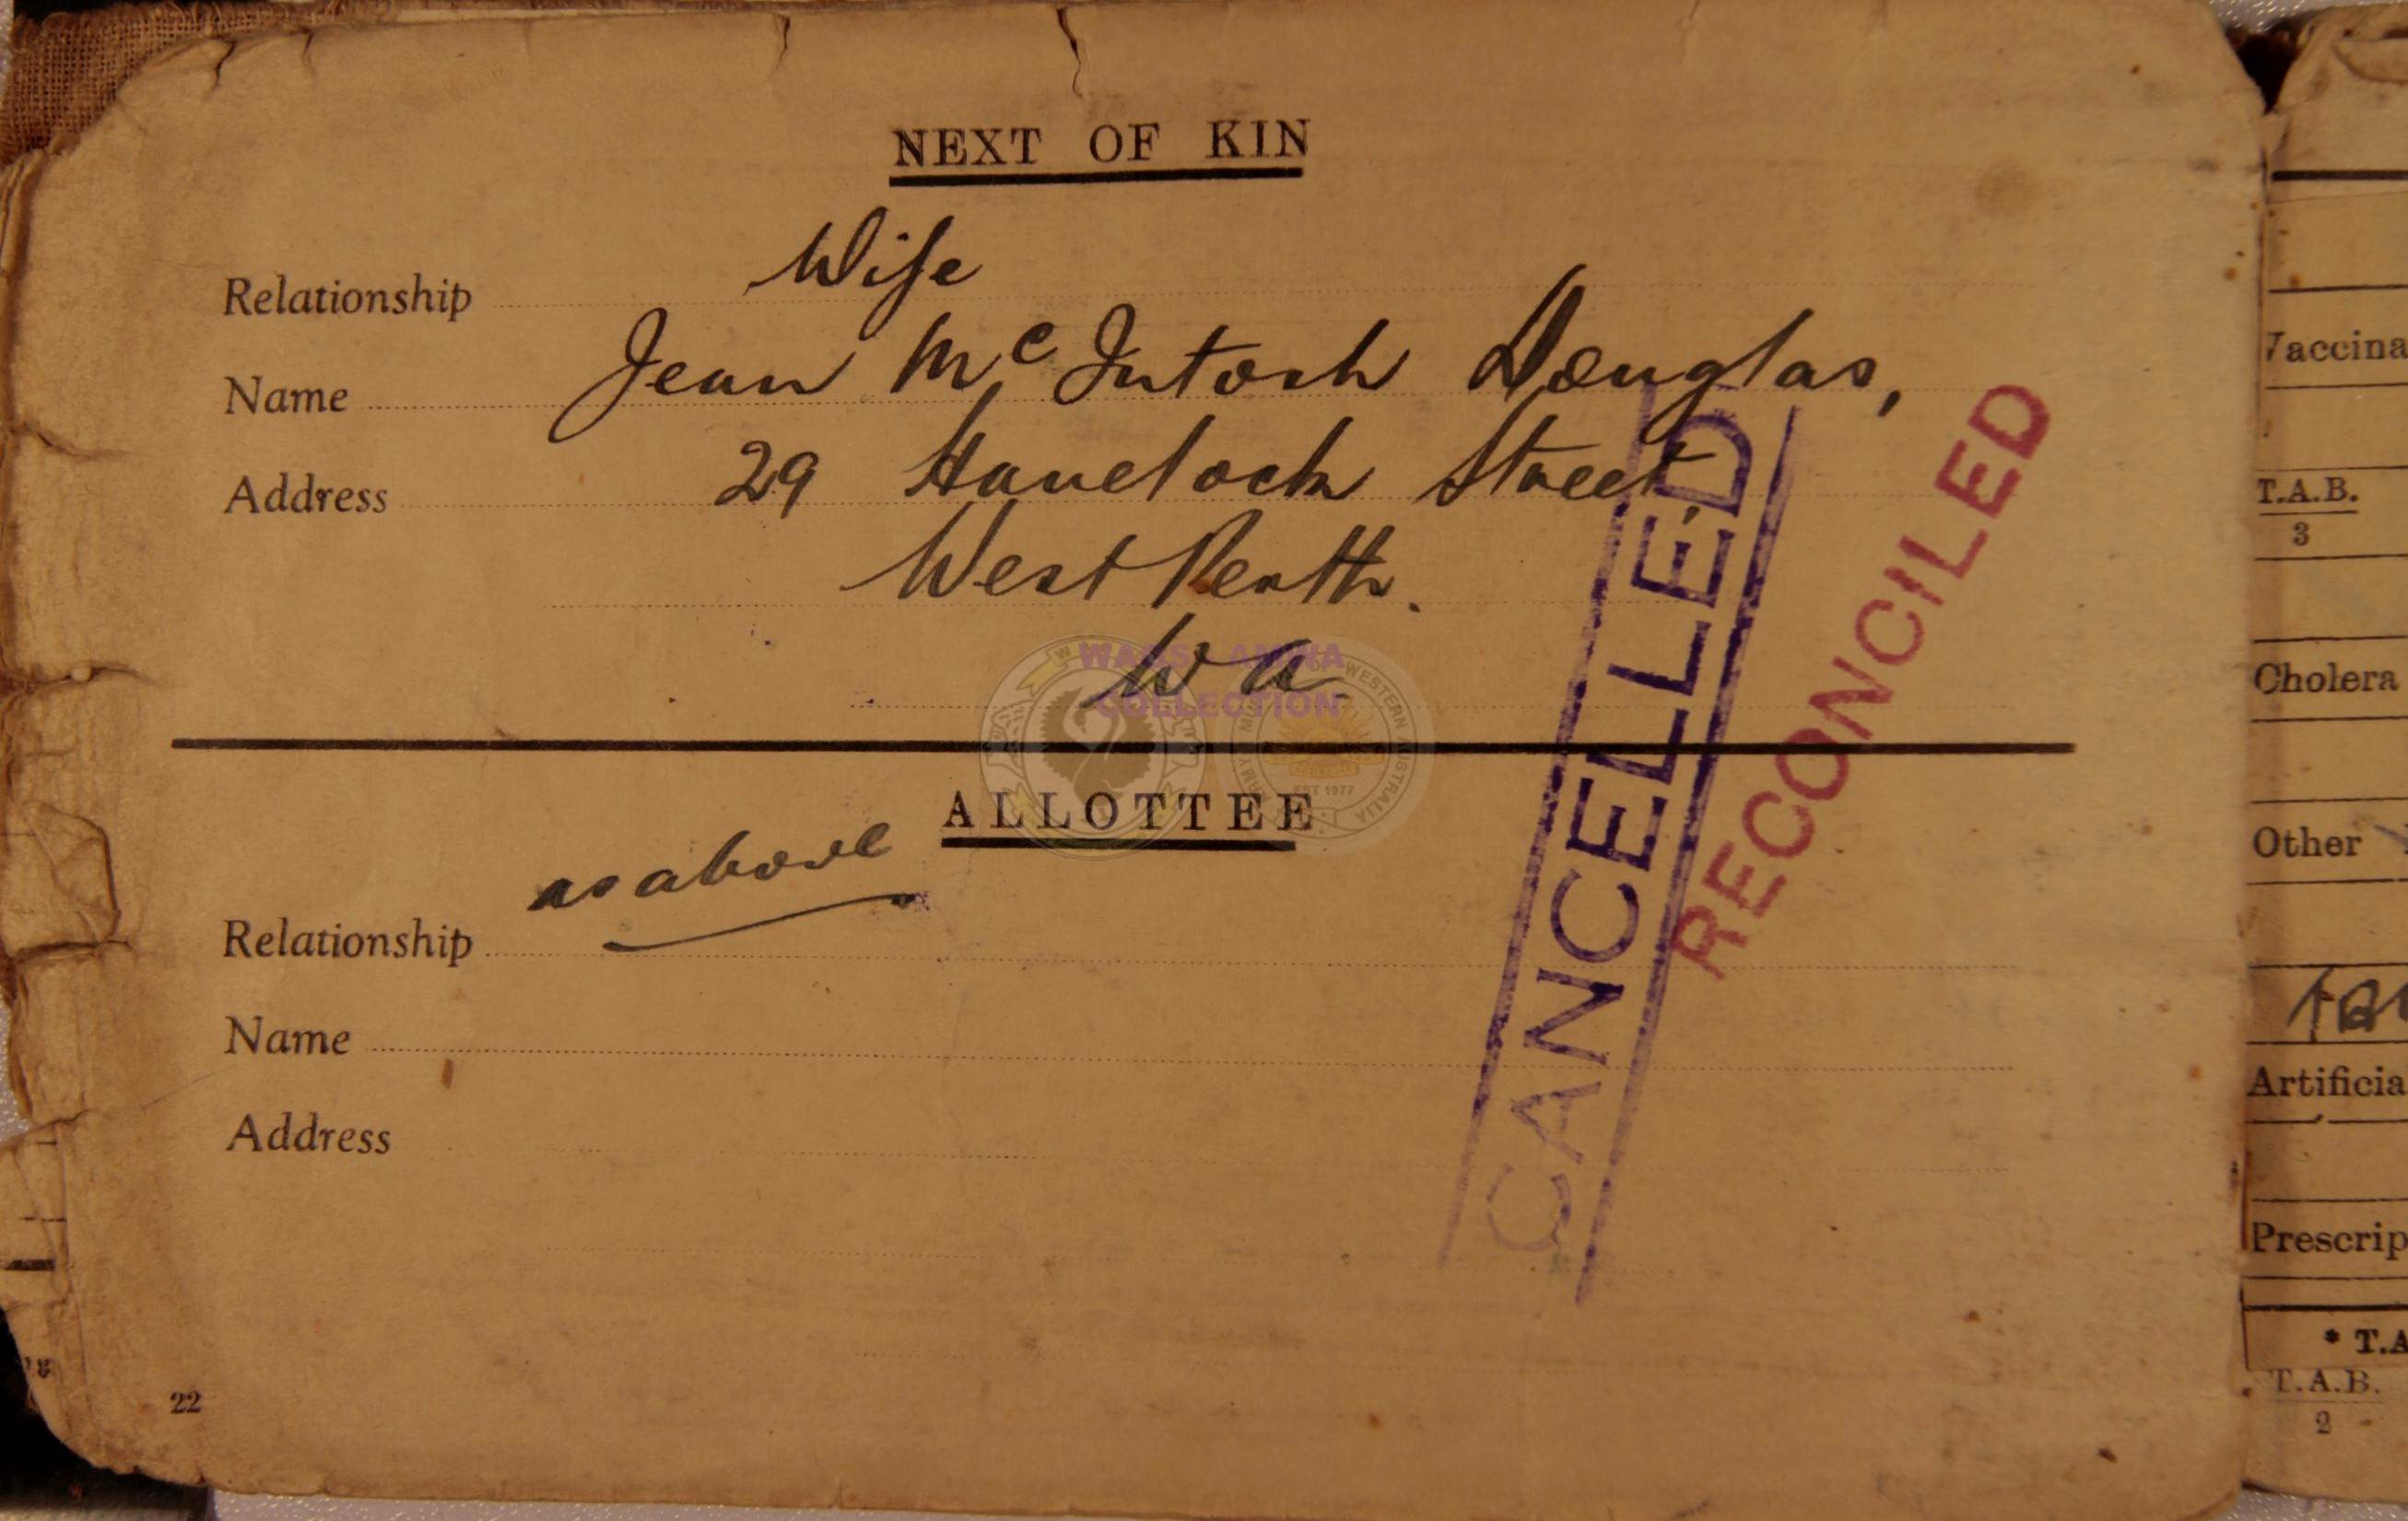 NEXT OF KIN
Relationship Wife
Name Jean McIntosh Douglas,
Address 29 Havelock Street,
West Perth.
WA
WAMS AMWA
COLLECTION
WESTERN AUSTRALIA
EST 1977
ALLOTTEE
as above
Relationship
Name
Address
CANCELLED
RECONCILED
22
Vaccina
T.A.B.
3
Cholera
Other
Artificia
Prescrip
* T.A
T.A.B.
2